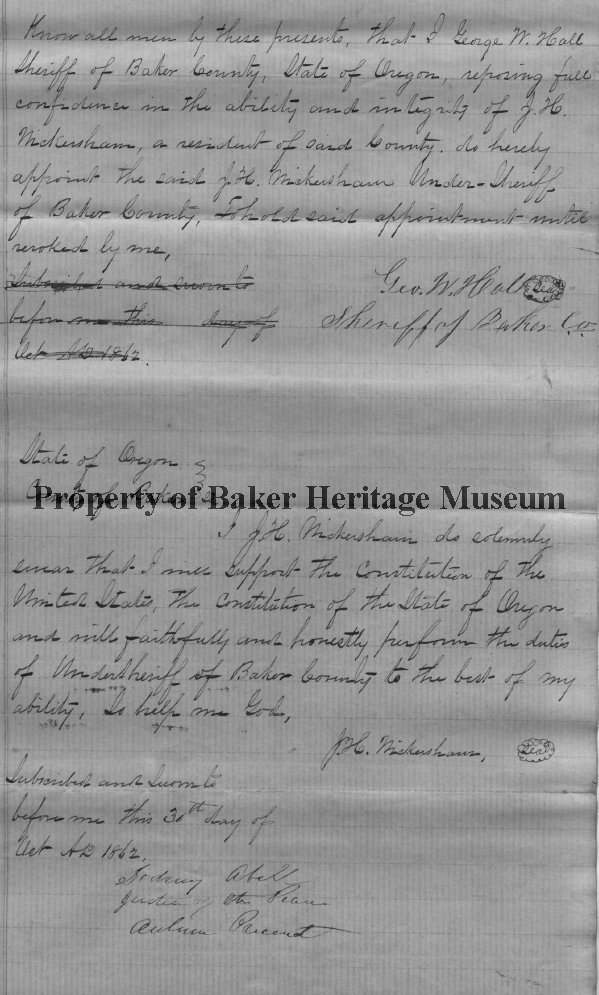 Know all men by these presents, that I George W. Hall
Sheriff of Baker County, State of Oregon, reposing full
confidence in the ability and integrity of J.H.
Wickersham, a resident of said County. do hereby
appoint the said J.H. Wickersham Under-Sheriff
of Baker County, To hold said appointment until
revoked by me,
Subscribed and sworn to
before me this day of
Oct AD 1862.
Geo. W. Hall Seal
Sheriff of Baker Co.
State of Oregon
County of Baker
Property of Baker Heritage Museum
I J.H. Wickersham do solemnly
swear that I will support the Constitution of the
United States, the Constitution of the State of Oregon
and will faithfully and honestly perform the duties
of Undersheriff of Baker County to the best of my
ability, So help me God,
J.H. Wickersham, Seal
Subscribed and Sworn to
before me this 30th day of
Oct AD 1862.
Sidney Abell
Justice of the Peace
Auburn Precinct